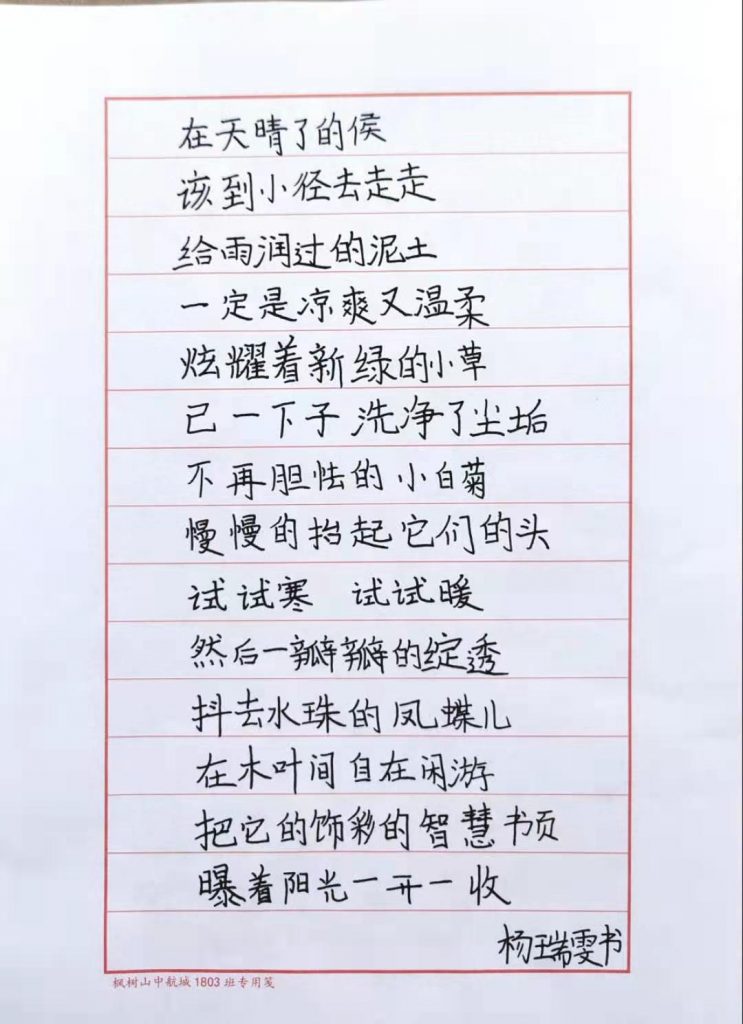 在天晴了的侯
该到小径去走走
给雨润过的泥土
一定是凉爽又温柔
炫耀着新绿的小草
已一下子洗净了尘垢
不再胆怯的小白菊
慢慢的抬起它们的头
试试寒 试试暖
然后一瓣瓣的绽透
抖去水珠的凤蝶儿
在木叶间自在闲游
把它的饰彩的智慧书页
曝着阳光一开一收
杨瑞雯书
枫树山中航城1803班专用笺